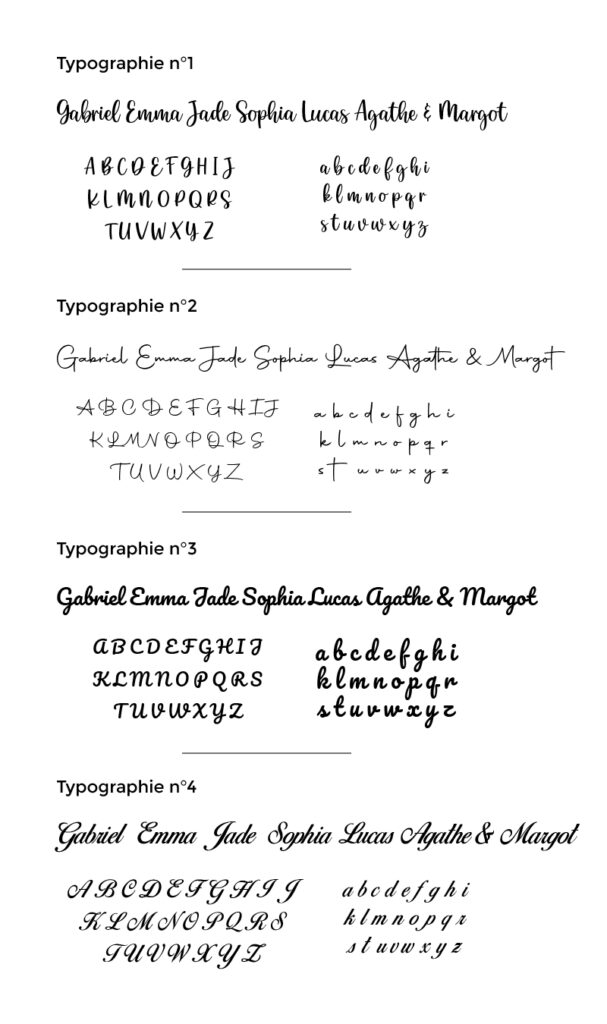 Typographie n°1
Gabriel Emma Jade Sophia Lucas Agathe & Margot
A B C D E F G H I J
K L M N O P Q R S
T U V W X Y Z
a b c d e f g h i
k l m n o p q r
s t u v w x y z
Typographie n°2
Gabriel Emma Jade Sophia Lucas Agathe & Margot
A B C D E F G H I J
K L M N O P Q R S
T U V W X Y Z
a b c d e f g h i
k l m n o p q r
s t u v w x y z
Typographie n°3
Gabriel Emma Jade Sophia Lucas Agathe & Margot
A B C D E F G H I J
K L M N O P Q R S
T U V W X Y Z
a b c d e f g h i
k l m n o p q r
s t u v w x y z
Typographie n°4
Gabriel Emma Jade Sophia Lucas Agathe & Margot
A B C D E F G H I J
K L M N O P Q R S
T U V W X Y Z
a b c d e f g h i
k l m n o p q r
s t u v w x y z